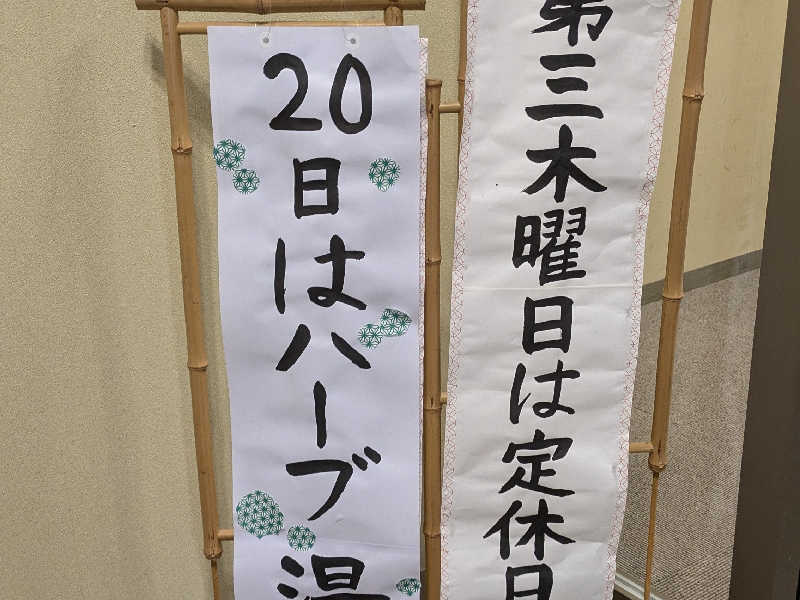 第三木曜日は定休日
20日はハーブ湯